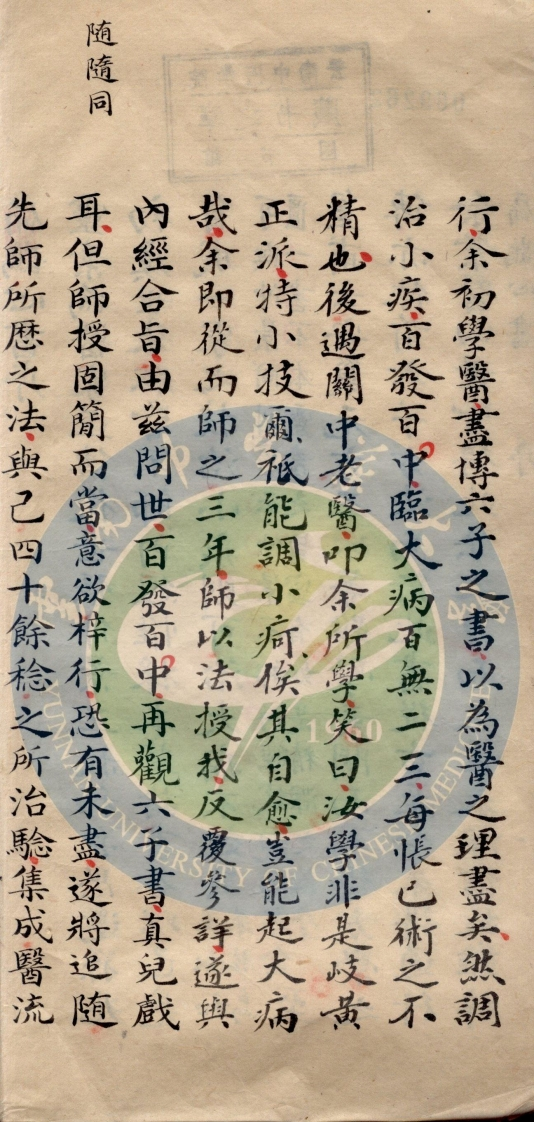 随隨同
行余初學醫盡博六子之書以為醫之理盡矣然調
治小疾百發百中臨大病百無二三每悵己術之不
精也後遇關中老醫叩余所學笑曰汝學非是岐黃
正派特小技爾衹能調小疴俟其自愈豈能起大病
哉余即從而師之三年師以法授我反覆參詳遂與
內經合旨由茲問世百發百中再觀六子書真兒戲
耳但師授固簡而當意欲梓行恐有未盡遂將追随
先師所歷之法與己四十餘稔之所治驗集成醫流
1960
YUNNAN UNIVERSITY OF CHINESE MEDICINE